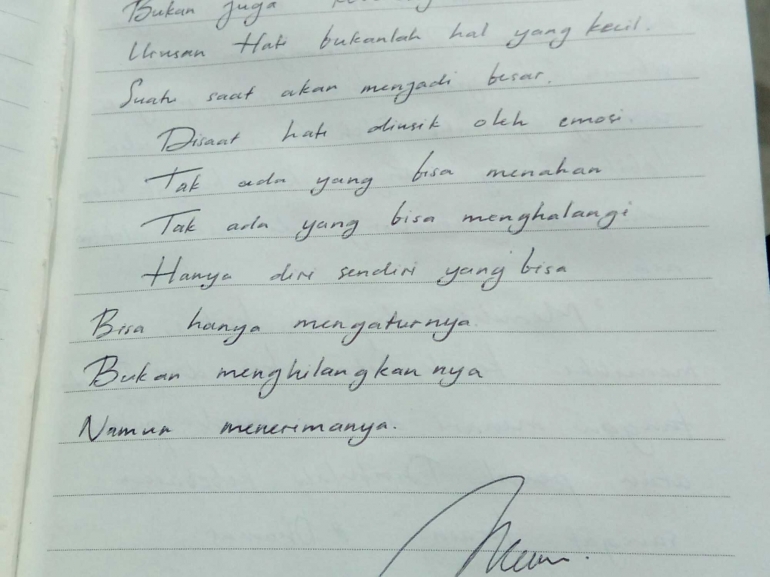 Bukan juga
Urusan Hati bukanlah hal yang kecil.
Suatu saat akan menjadi besar.
Disaat hati diusik oleh emosi
Tak ada yang bisa menahan
Tak ada yang bisa menghalangi
Hanya diri sendiri yang bisa
Bisa hanya mengaturnya
Bukan menghilangkan nya
Namun menerimanya.